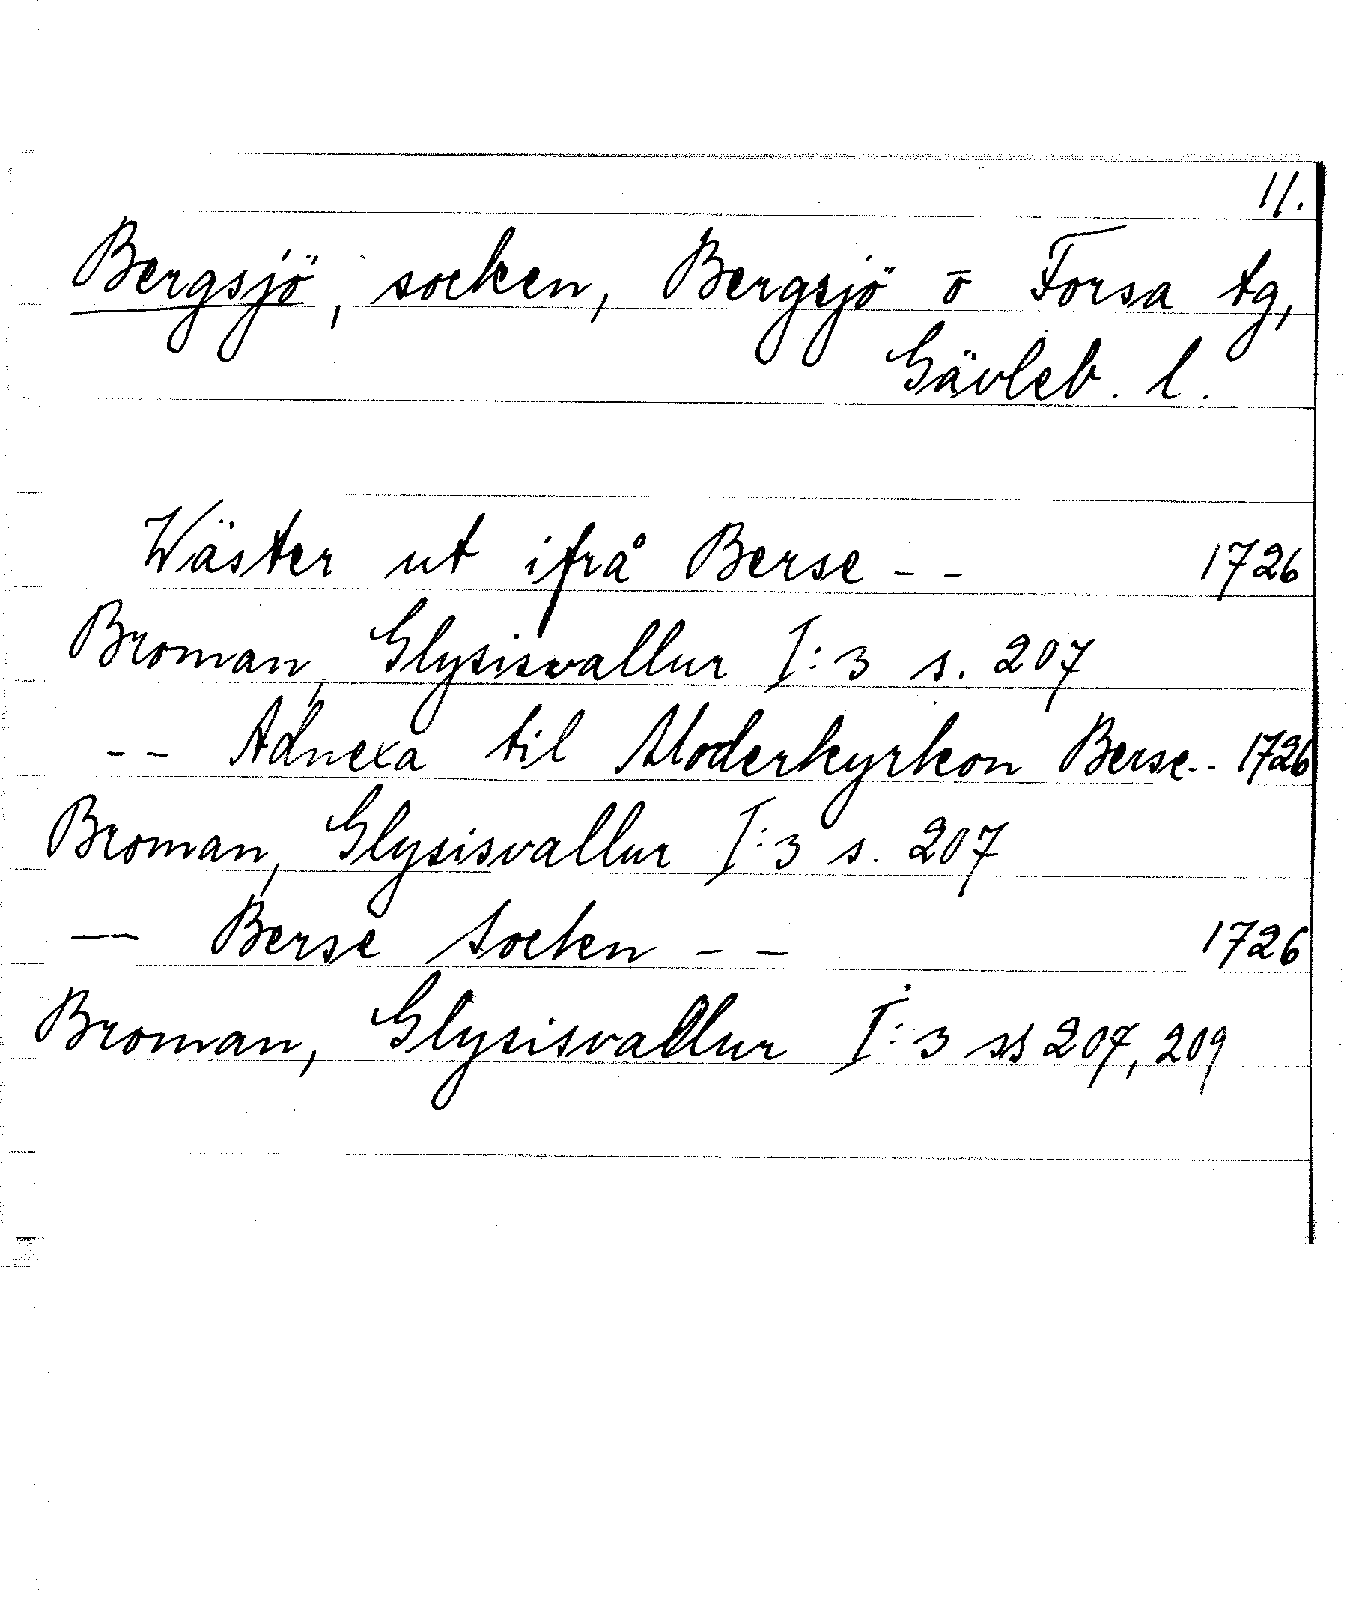 11.
Bergsjö, socken, Bergsjö o Forsa tg,
Gävleb. l.
Wäster ut ifrå Berse - - 1726
Broman, Glysisvallur I:3 s. 207
- - Adnexa til Moderkyrkon Berse - - 1726
Broman, Glysisvallur I:3 s. 207
- - Berse Socken - - 1726
Broman, Glysisvallur I:3 ss 207, 209